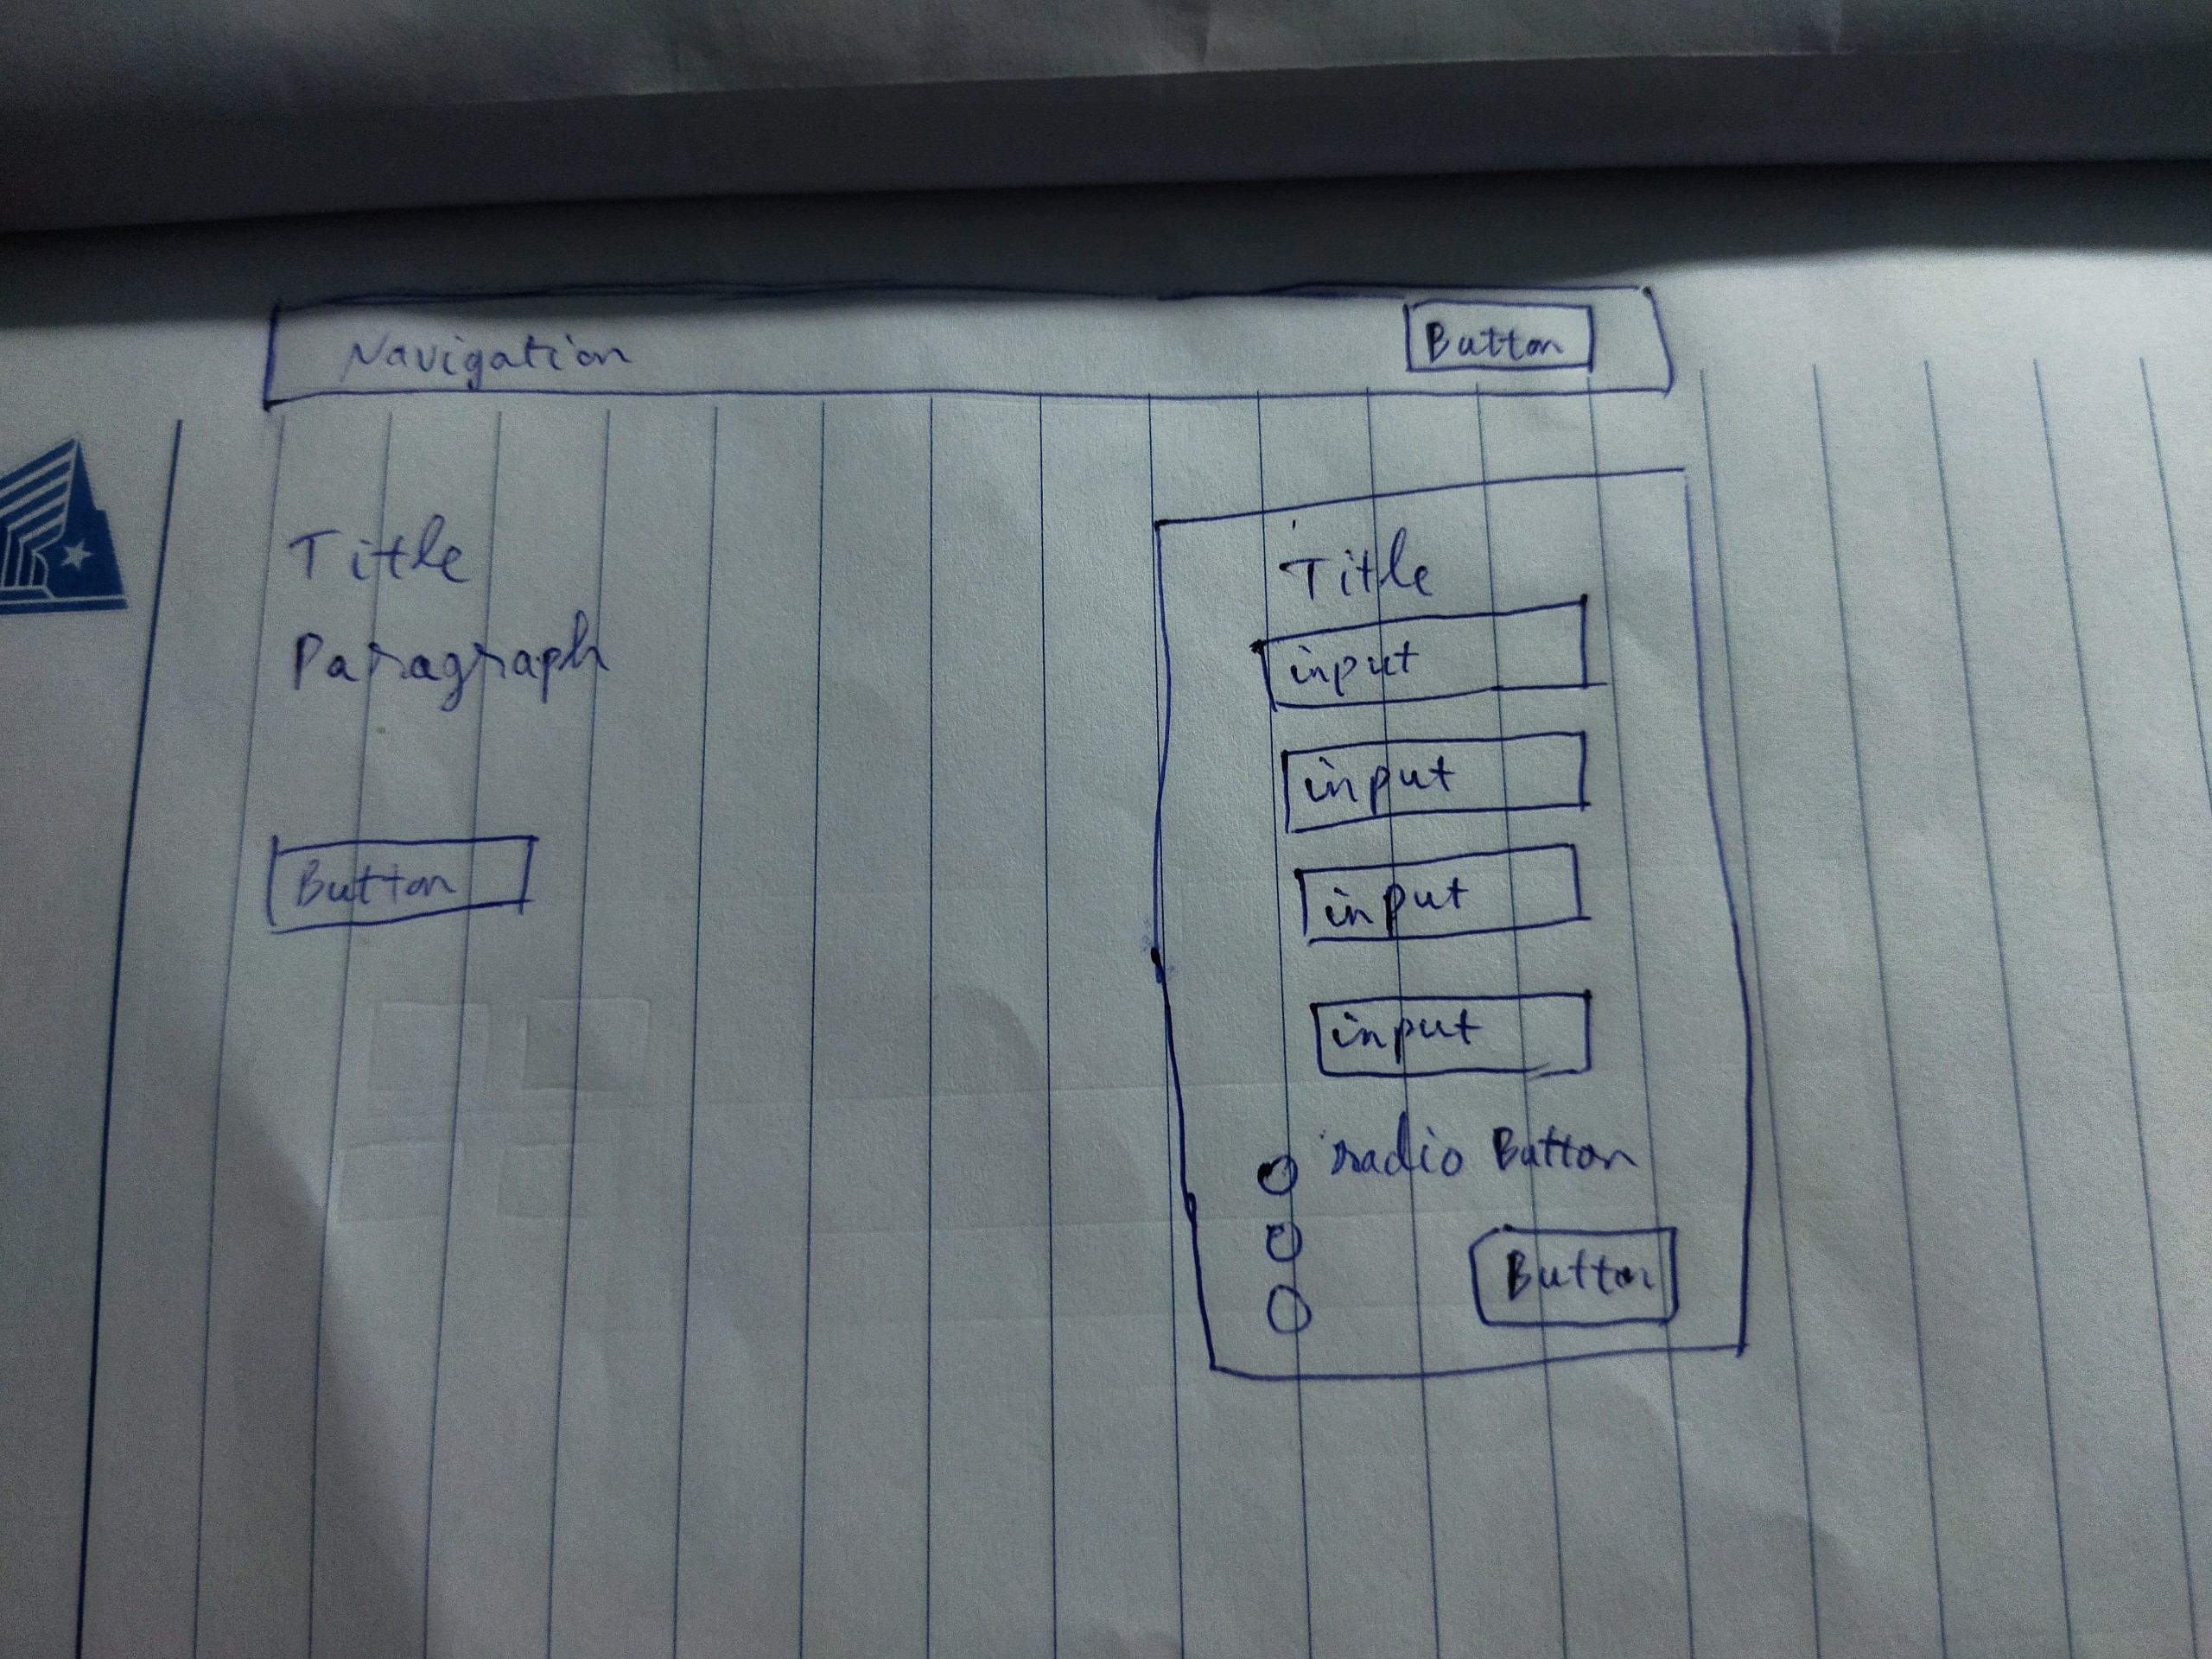 Navigation
Button
Title
Paragraph
Button
Title
input
input
input
input
radio Button
Button